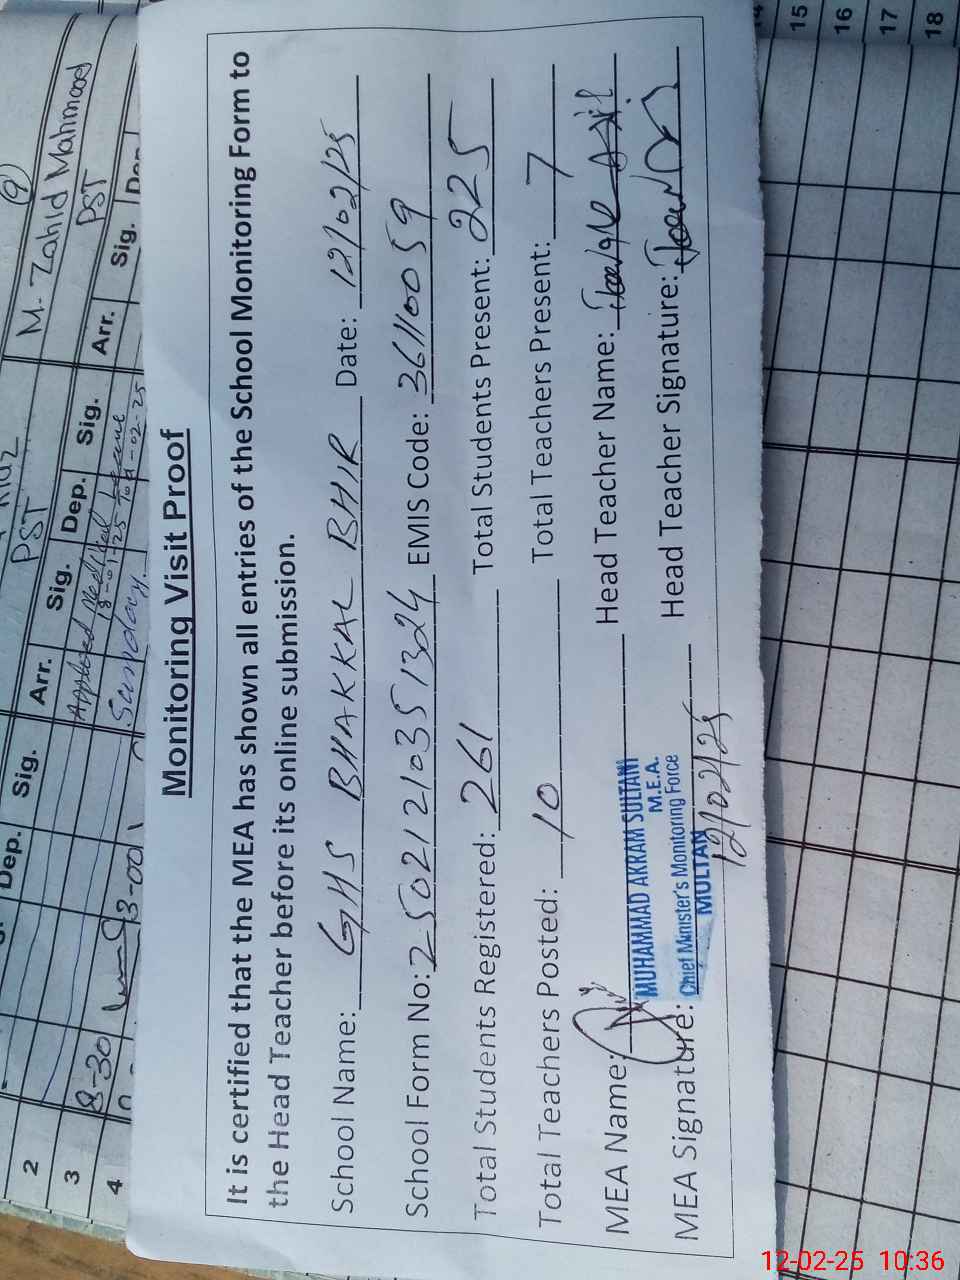 M. Zahid Mahmood
PST
PST
Arr. Sig. Dep. Sig. Arr. Sig.
Dep. Sig.
2
3
4
8-30
3-00
Sunday
Monitoring Visit Proof
It is certified that the MEA has shown all entries of the School Monitoring Form to
the Head Teacher before its online submission.
School Name: GHS BHAKKAL BHIR Date: 12/02/25
School Form No: 2502121035 1324 EMIS Code: 36110059
Total Students Registered: 261 Total Students Present: 225
Total Teachers Posted: 10 Total Teachers Present: 7
MEA Name: Head Teacher Name:
MUHAMMAD AKRAM SULTANI
M.E.A.
Chief Minister's Monitoring Force
MULTAN
MEA Signature: Head Teacher Signature:
12/02/25
15
16
17
18
12-02-25 10:36